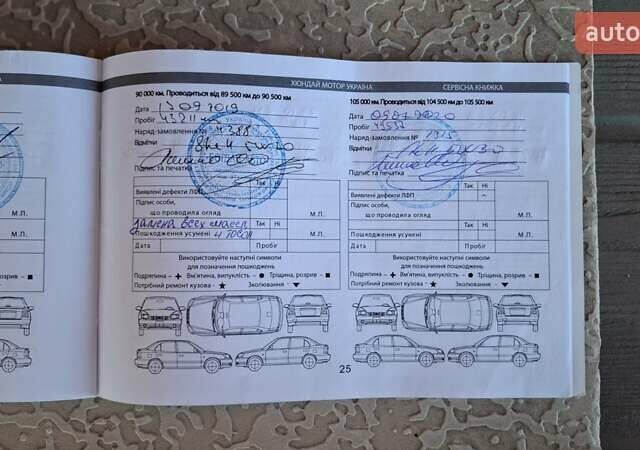 auto
НА
ХЮНДАЙ МОТОР УКРАЇНА
СЕРВІСНА КНИЖКА
90 000 км. Проводиться від 89 500 км до 90 500 км
Дата 17 09 2019
Пробіг 43211 км
Наряд-замовлення № 4388
Відмітки
Підпис та печатка
Так Ні
Виявлені дефекти ЛФП
Підпис особи,
що проводила огляд М.П.
замена всех масел
Так Ні
Пошкодження усунені М.П.
Дата Пробіг
Використовуйте наступні символи
для позначення пошкоджень
Подряпина – + Вм'ятина, випуклість – ● Тріщина, розрив – ■
Потрібний ремонт кузова – ★ Зколювання – ▼
105 000 км. Проводиться від 104 500 км до 105 500 км
Дата
Пробіг
Наряд-замовлення №
Відмітки
Підпис та печатка
Так Ні
Виявлені дефекти ЛФП –
Підпис особи,
що проводила огляд М.П.
Так Ні
Пошкодження усунені М.П.
Дата Пробіг
Використовуйте наступні символи
для позначення пошкоджень
Подряпина – + Вм'ятина, випуклість – ● Тріщина, розрив – ■
Потрібний ремонт кузова – ★ Зколювання – ▼
25
М.П.
М.П.
розрив – ■